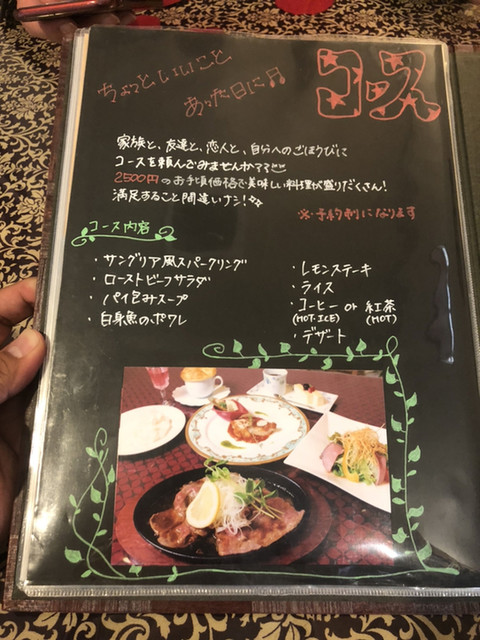 ちょっといいこと
あった日に♫
コース
家族と、友達と、恋人と、自分へのごほうびに
コースを頼んでみませんか??
2500円のお手頃価格で美味しい料理が盛りだくさん!
満足すること間違いナシ!☆
※予約制になります
コース内容
・サングリア風スパークリング
・ローストビーフサラダ
・パイ包みスープ
・白身魚のポワレ
・レモンステーキ
・ライス
・コーヒー or 紅茶
(HOT.ICE) (HOT)
・デザート